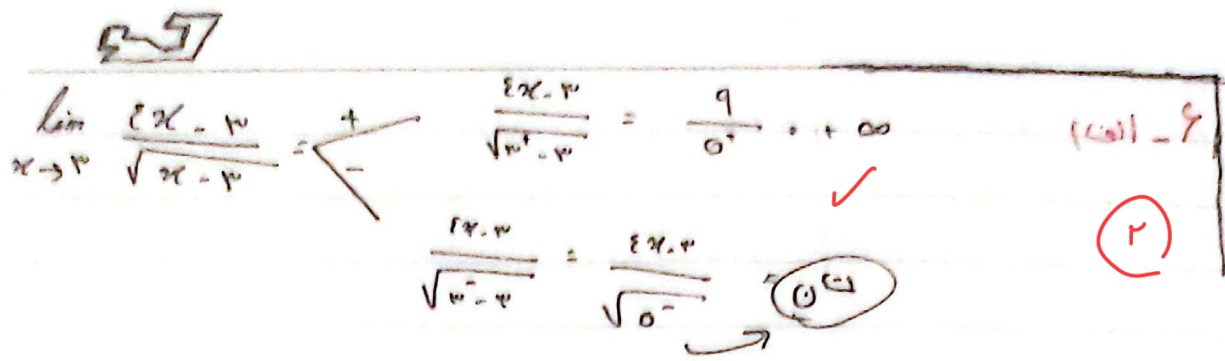 ۶ - (الف)
lim x→۳ (۴x - ۳)/√(x - ۳) = < + (۴x - ۳)/√(۳⁺ - ۳) = ۹/۰⁺ = + ∞ ✓
- (۴x - ۳)/√(۳⁻ - ۳) = (۴x - ۳)/√(۰⁻) =
۲